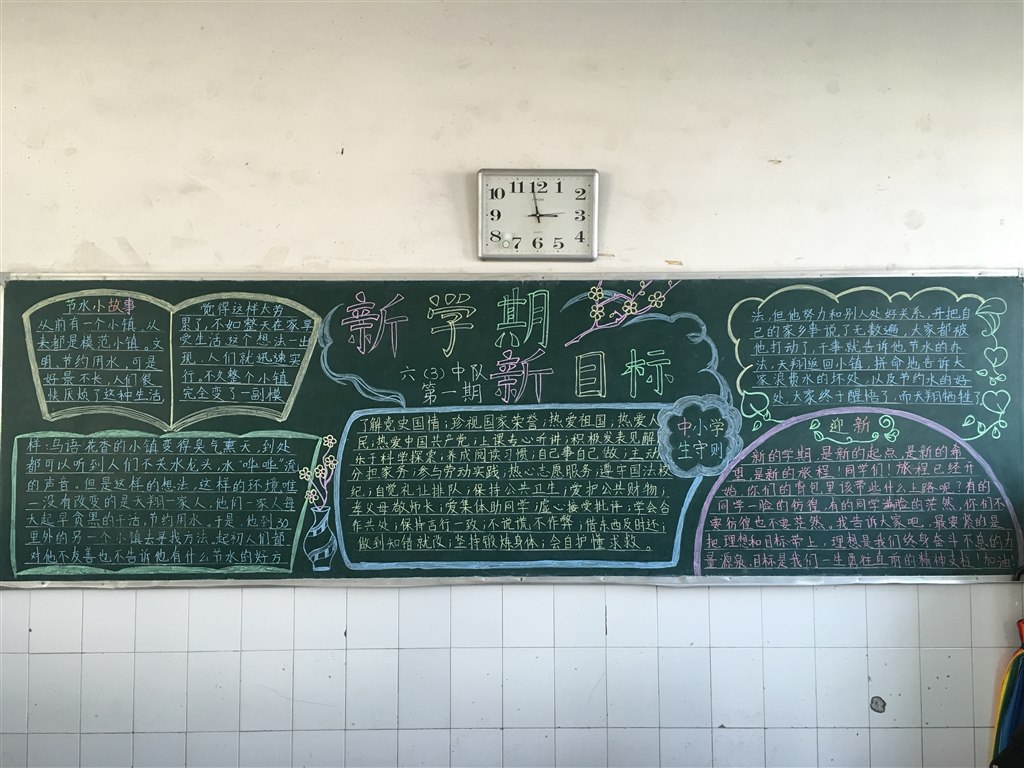 新学期
新目标
六(3)中队
第一期
节水小故事
从前有一个小镇,从
来都是模范小镇。文
明、节约用水,可是
好景不长,人们很
快厌烦了这种生活,
觉得这样太劳
累了,不如整天在家享
受生活,这个想法一出
现,人们就迅速实
行。不久整个小镇
完全变了一副模
样:鸟语花香的小镇变得臭气熏天,到处
都可以听到人们不关水龙头,水“哗哗”流
的声音,但是这样的想法,这样的环境唯
一没有改变的是天翔一家人,他们一家人每
天起早贪黑的干活,节约用水。于是,他到30
里外的另一个小镇去寻找方法。起初人们都
对他不友善也不告诉他有什么节水的好方
法,但他努力和别人处好关系,并把自
己的家乡事说了无数遍,大家都被
他打动了,干事就告诉他节水的办
法,天翔返回小镇,拼命地告诉大
家浪费水的坏处,以及节约水的好
处,大家终于醒悟了,而天翔牺牲了
中小学
生守则
了解党史国情;珍视国家荣誉;热爱祖国;热爱人
民;热爱中国共产党;上课专心听讲;积极发表见解;
乐于科学探索;养成阅读习惯;自己事自己做;主动
分担家务;参与劳动实践;热心志愿服务;遵守国法校
纪;自觉礼让排队;保持公共卫生;爱护公共财物;
孝父母敬师长;爱集体助同学;虚心接受批评;学会合
作共处;保持言行一致;不说谎不作弊;借东西及时还;
做到知错就改;坚持锻炼身体;会自护懂求救。
迎新
新的学期,是新的起点,是新的希
望,是新的旅程!同学们!旅程已经开
始,你们的背包里该带些什么上路呢?有的
同学一脸的彷徨,有的同学满脸的茫然,你们不
要彷徨也不要茫然。我告诉大家吧,最要紧的是
把理想和目标带上,理想是我们终身奋斗不息的力
量源泉,目标是我们一生勇往直前的精神支柱,加油!
10 11 12 1 2
9 3
8 7 6 5 4